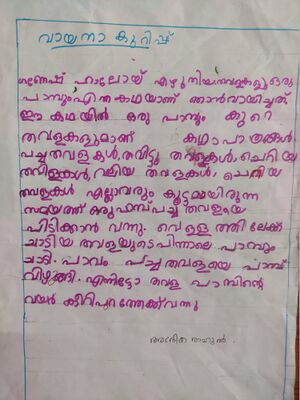 വായനാ കുറിപ്പ്
ഗണേഷ് ഹാലോയ് എഴുതിയ തവളകളും ഒരു
പാമ്പും എന്ന കഥയാണ് ഞാൻ വായിച്ചത്
ഈ കഥയിൽ ഒരു പാമ്പും കുറെ
തവളകളുമാണ് കഥാപാത്രങ്ങൾ
പച്ച തവളകൾ, തവിട്ടു തവളകൾ, ചെറിയ
തവളകൾ, വലിയ തവളകൾ,
തവളകൾ എല്ലാവരും കൂട്ടുമായിരുന്ന
സമയത്ത് ഒരു പാമ്പ് പച്ച തവളയെ
പിടിക്കാൻ വന്നു. വെള്ളത്തിലേക്ക്
ചാടിയ തവളയുടെ പിന്നാലെ പാമ്പും
ചാടി. പാവം പച്ച തവളയെ പാമ്പ്
വിഴുങ്ങി. എന്നിട്ടോ തവള പാമ്പിന്റെ
വയർ കീറി പുറത്തേക്ക് വന്നു